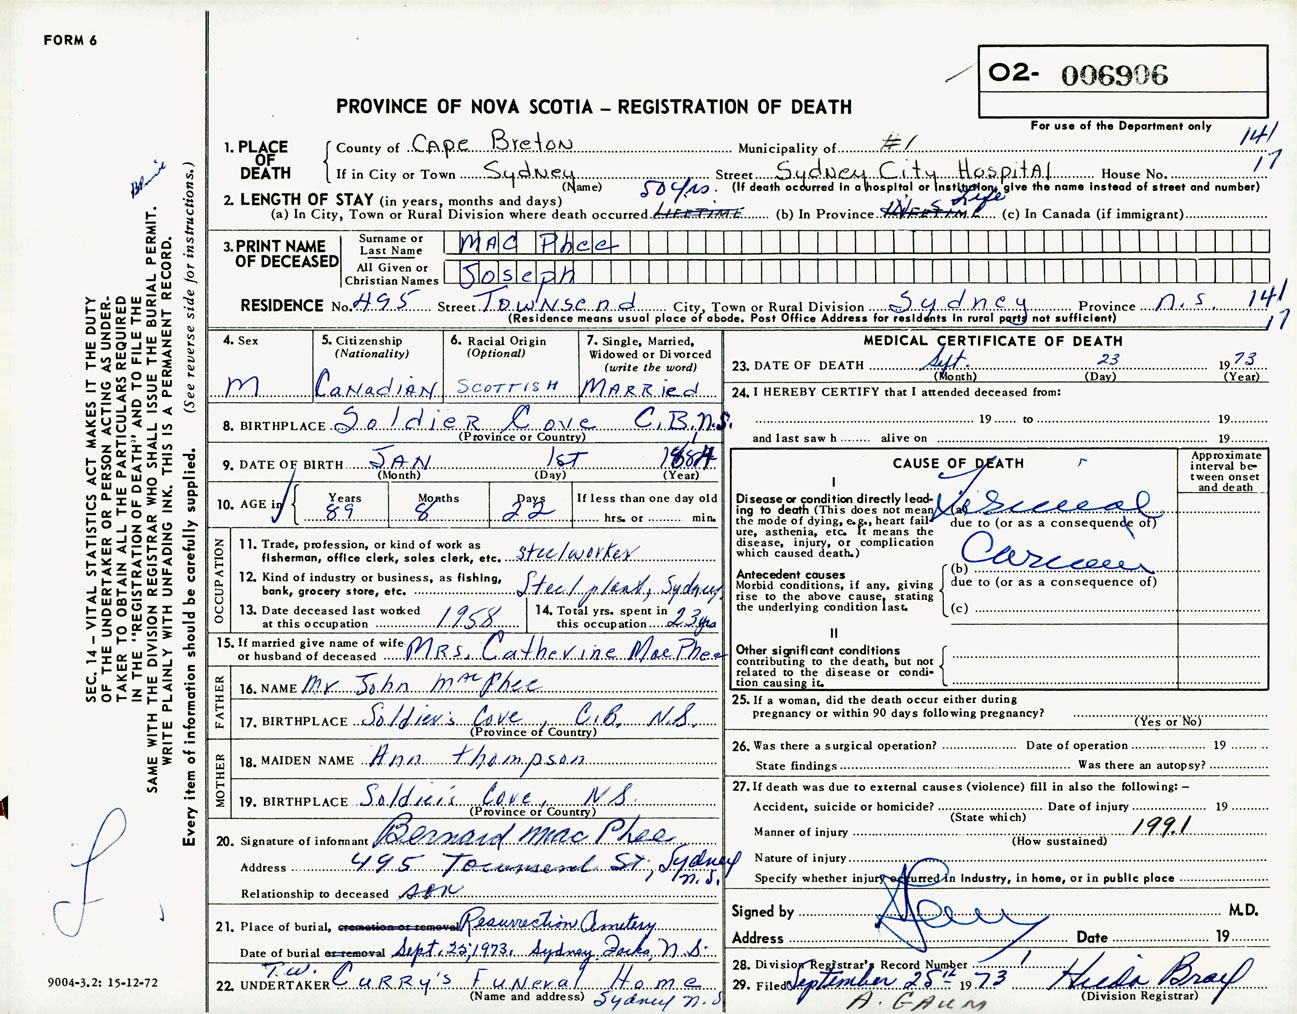 FORM 6
02- 006906
For use of the Department only
PROVINCE OF NOVA SCOTIA – REGISTRATION OF DEATH
1. PLACE OF DEATH
County of Cape Breton Municipality of #1 141
If in City or Town Sydney Street Sydney City Hospital House No. 17
(Name) (If death occurred in a hospital or institution, give the name instead of street and number)
2. LENGTH OF STAY (in years, months and days)
(a) In City, Town or Rural Division where death occurred LIFETIME 50 yrs. (b) In Province Life (c) In Canada (if immigrant)
3. PRINT NAME OF DECEASED
Surname or Last Name Mac Phee
All Given or Christian Names Joseph
RESIDENCE No. 495 Street Townsend City, Town or Rural Division Sydney Province N.S. 141
17
(Residence means usual place of abode. Post Office Address for residents in rural parts not sufficient)
4. Sex
M
5. Citizenship (Nationality)
Canadian
6. Racial Origin (Optional)
Scottish
7. Single, Married, Widowed or Divorced (write the word)
Married
8. BIRTHPLACE Soldier Cove C.B., N.S.
(Province or Country)
9. DATE OF BIRTH JAN 1st 1884
(Month) (Day) (Year)
10. AGE in Years 89 Months 8 Days 22
If less than one day old
hrs. or min.
OCCUPATION
11. Trade, profession, or kind of work as fisherman, office clerk, sales clerk, etc. steelworker
12. Kind of industry or business, as fishing, bank, grocery store, etc. Steel plant, Sydney
13. Date deceased last worked at this occupation 1958
14. Total yrs. spent in this occupation 23 yrs
15. If married give name of wife or husband of deceased Mrs. Catherine MacPhee
FATHER
16. NAME Mr John MacPhee
17. BIRTHPLACE Soldier's Cove, C.B. N.S.
(Province of Country)
MOTHER
18. MAIDEN NAME Ann Thompson
19. BIRTHPLACE Soldier's Cove, N.S.
(Province or Country)
20. Signature of informant Bernard MacPhee
Address 495 Townsend St., Sydney N.S.
Relationship to deceased son
21. Place of burial, cremation or removal Resurrection Cemetery
Date of burial or removal Sept. 25, 1973. Sydney Forks, N.S.
22. UNDERTAKER T.W. Curry's Funeral Home
(Name and address) Sydney N.S.
MEDICAL CERTIFICATE OF DEATH
23. DATE OF DEATH Sept. 23 1973
(Month) (Day) (Year)
24. I HEREBY CERTIFY that I attended deceased from:
19 to 19
and last saw h alive on 19
CAUSE OF DEATH
Approximate interval between onset and death
I
Disease or condition directly leading to death (This does not mean the mode of dying, e.g., heart failure, asthenia, etc. It means the disease, injury, or complication which caused death.)
(a)
due to (or as a consequence of)
Antecedent causes
Morbid conditions, if any, giving rise to the above cause, stating the underlying condition last.
(b)
due to (or as a consequence of)
(c)
II
Other significant conditions contributing to the death, but not related to the disease or condition causing it.
25. If a woman, did the death occur either during pregnancy or within 90 days following pregnancy?
(Yes or No)
26. Was there a surgical operation? Date of operation 19
State findings Was there an autopsy?
27. If death was due to external causes (violence) fill in also the following: –
Accident, suicide or homicide? Date of injury 19
(State which)
Manner of injury 199.1
(How sustained)
Nature of injury
Specify whether injury occurred in Industry, in home, or in public place
Signed by M.D.
Address Date 19
28. Division Registrar's Record Number 1
29. Filed September 25th 1973 Hilda Bray
(Division Registrar)
A. GAUM
SEC. 14 – VITAL STATISTICS ACT MAKES IT THE DUTY
OF THE UNDERTAKER OR PERSON ACTING AS UNDER-
TAKER TO OBTAIN ALL THE PARTICULARS REQUIRED
IN THE "REGISTRATION OF DEATH" AND TO FILE THE
SAME WITH THE DIVISION REGISTRAR WHO SHALL ISSUE THE BURIAL PERMIT.
WRITE PLAINLY WITH UNFADING INK. THIS IS A PERMANENT RECORD.
Every item of information should be carefully supplied. (See reverse side for instructions.)
9004-3.2: 15-12-72